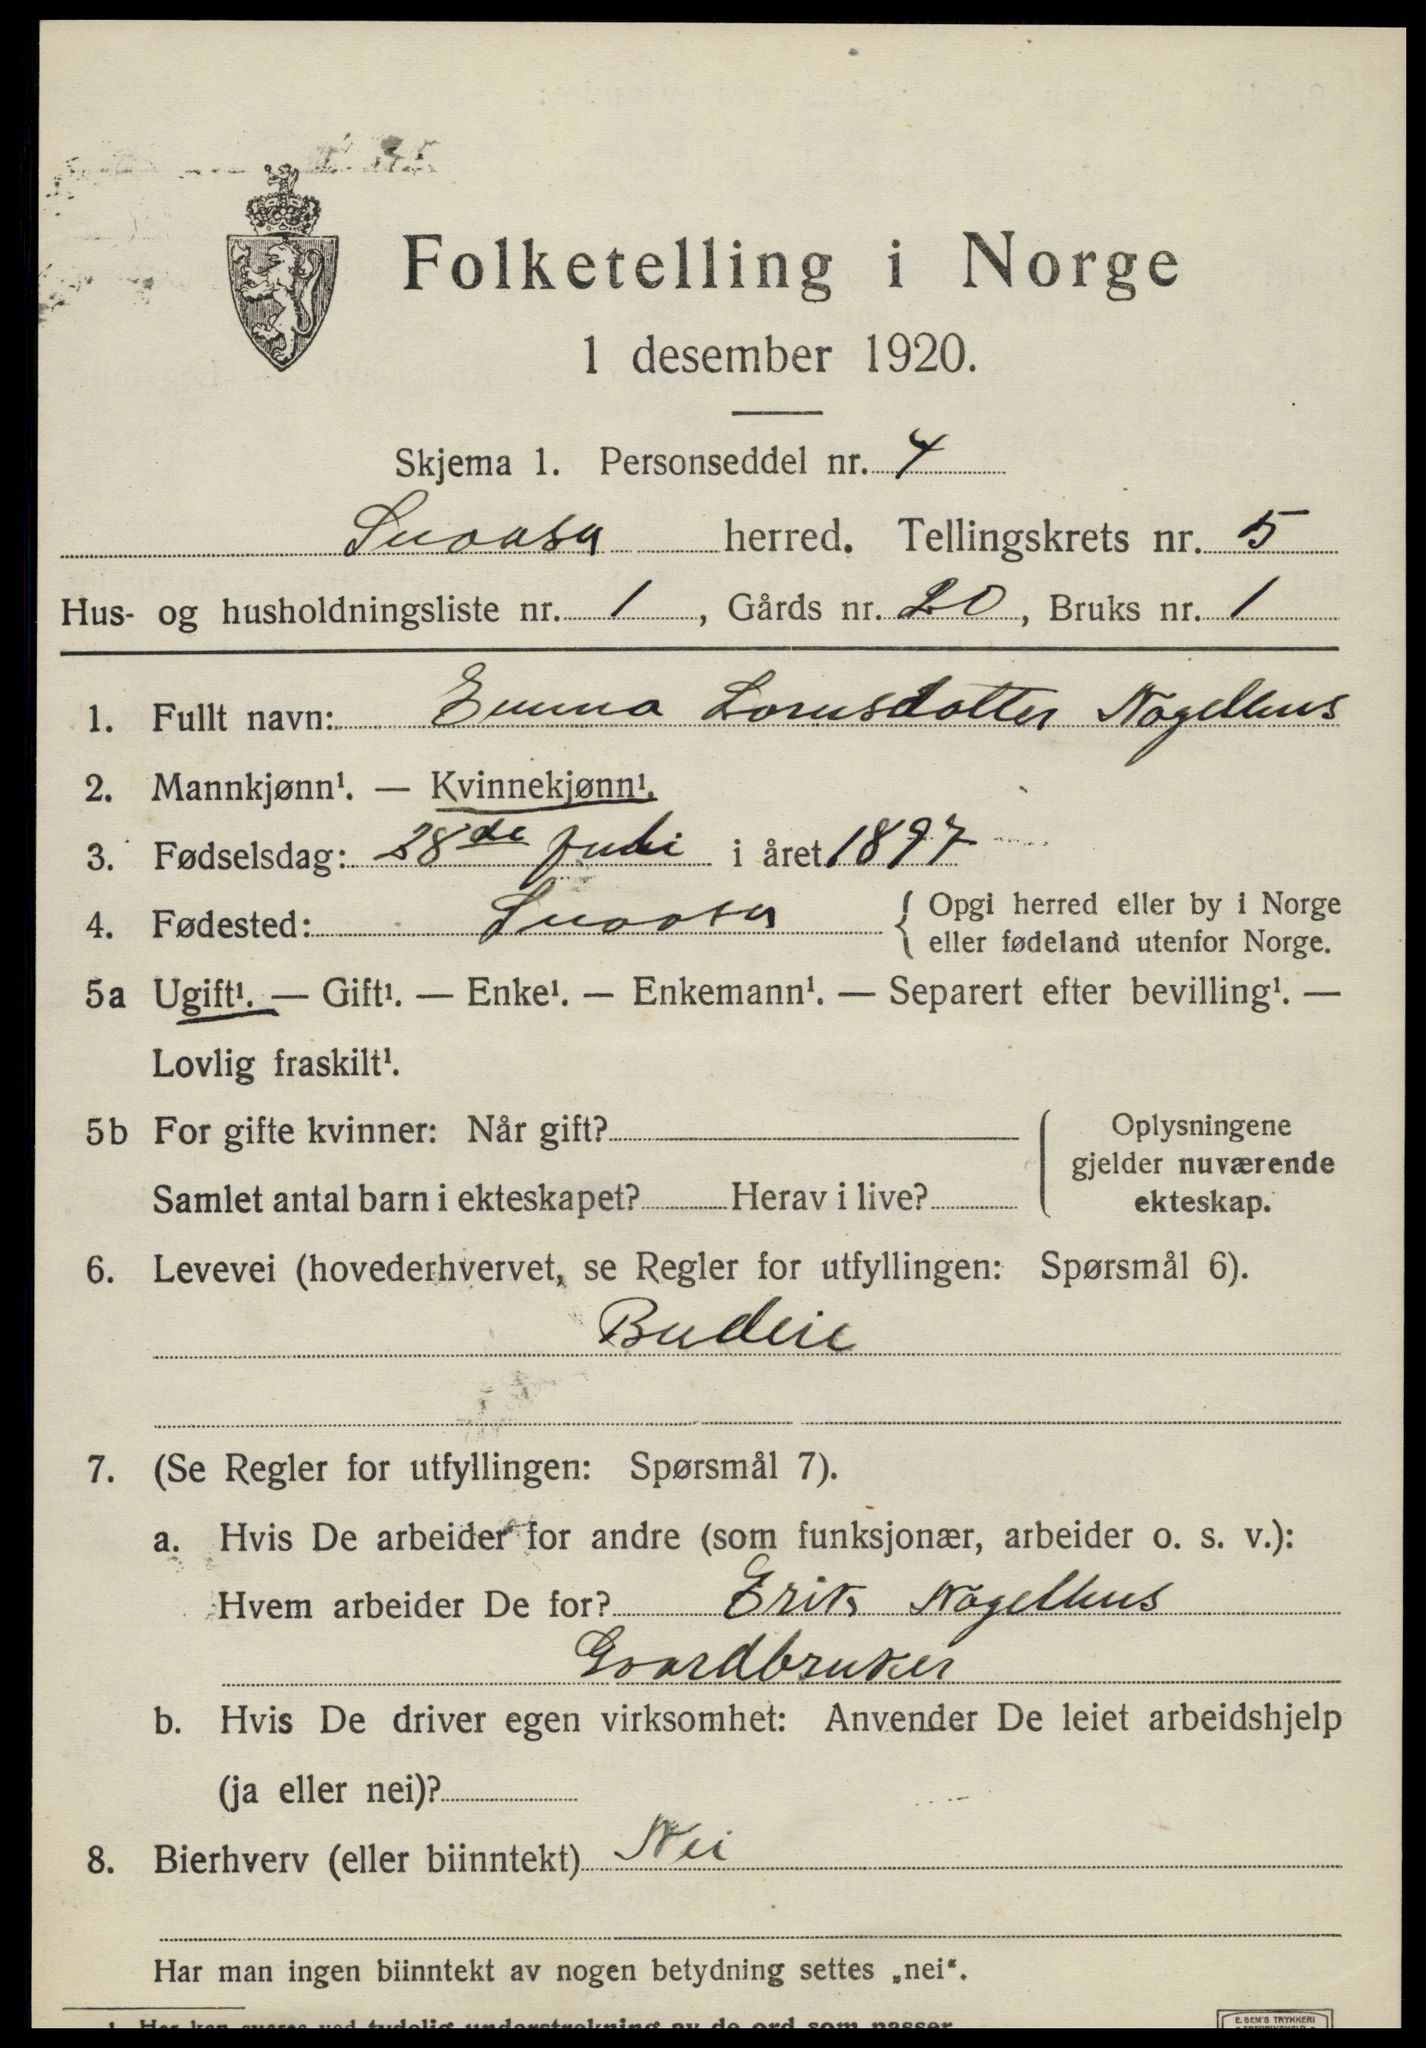 Folketelling i Norge
1 desember 1920.
Skjema 1. Personseddel nr. 4
Snaasa herred. Tellingskrets nr. 5
Hus- og husholdningsliste nr. 1, Gårds nr. 20, Bruks nr. 1
1. Fullt navn: Emma Lornsdatter Nagelhus
2. Mannkjønn¹. — Kvinnekjønn¹.
3. Fødselsdag: 28de juli i året 1897
4. Fødested: Snaasa { Opgi herred eller by i Norge
eller fødeland utenfor Norge.
5a Ugift¹. — Gift¹. — Enke¹. — Enkemann¹. — Separert efter bevilling¹. —
Lovlig fraskilt¹.
5b For gifte kvinner: Når gift?
Samlet antal barn i ekteskapet? Herav i live?
Oplysningene
gjelder nuværende
ekteskap.
6. Levevei (hovederhvervet, se Regler for utfyllingen: Spørsmål 6).
Budeie
7. (Se Regler for utfyllingen: Spørsmål 7).
a. Hvis De arbeider for andre (som funksjonær, arbeider o. s. v.):
Hvem arbeider De for? Erik Nagelhus
Gaardbruker
b. Hvis De driver egen virksomhet: Anvender De leiet arbeidshjelp
(ja eller nei)?
8. Bierhverv (eller biinntekt) Nei
Har man ingen biinntekt av nogen betydning settes „nei“.
¹ Her kan svares ved tydelig understrekning av de ord som passer.
E. SEM'S TRYKKERI
FREDRIKSHALD